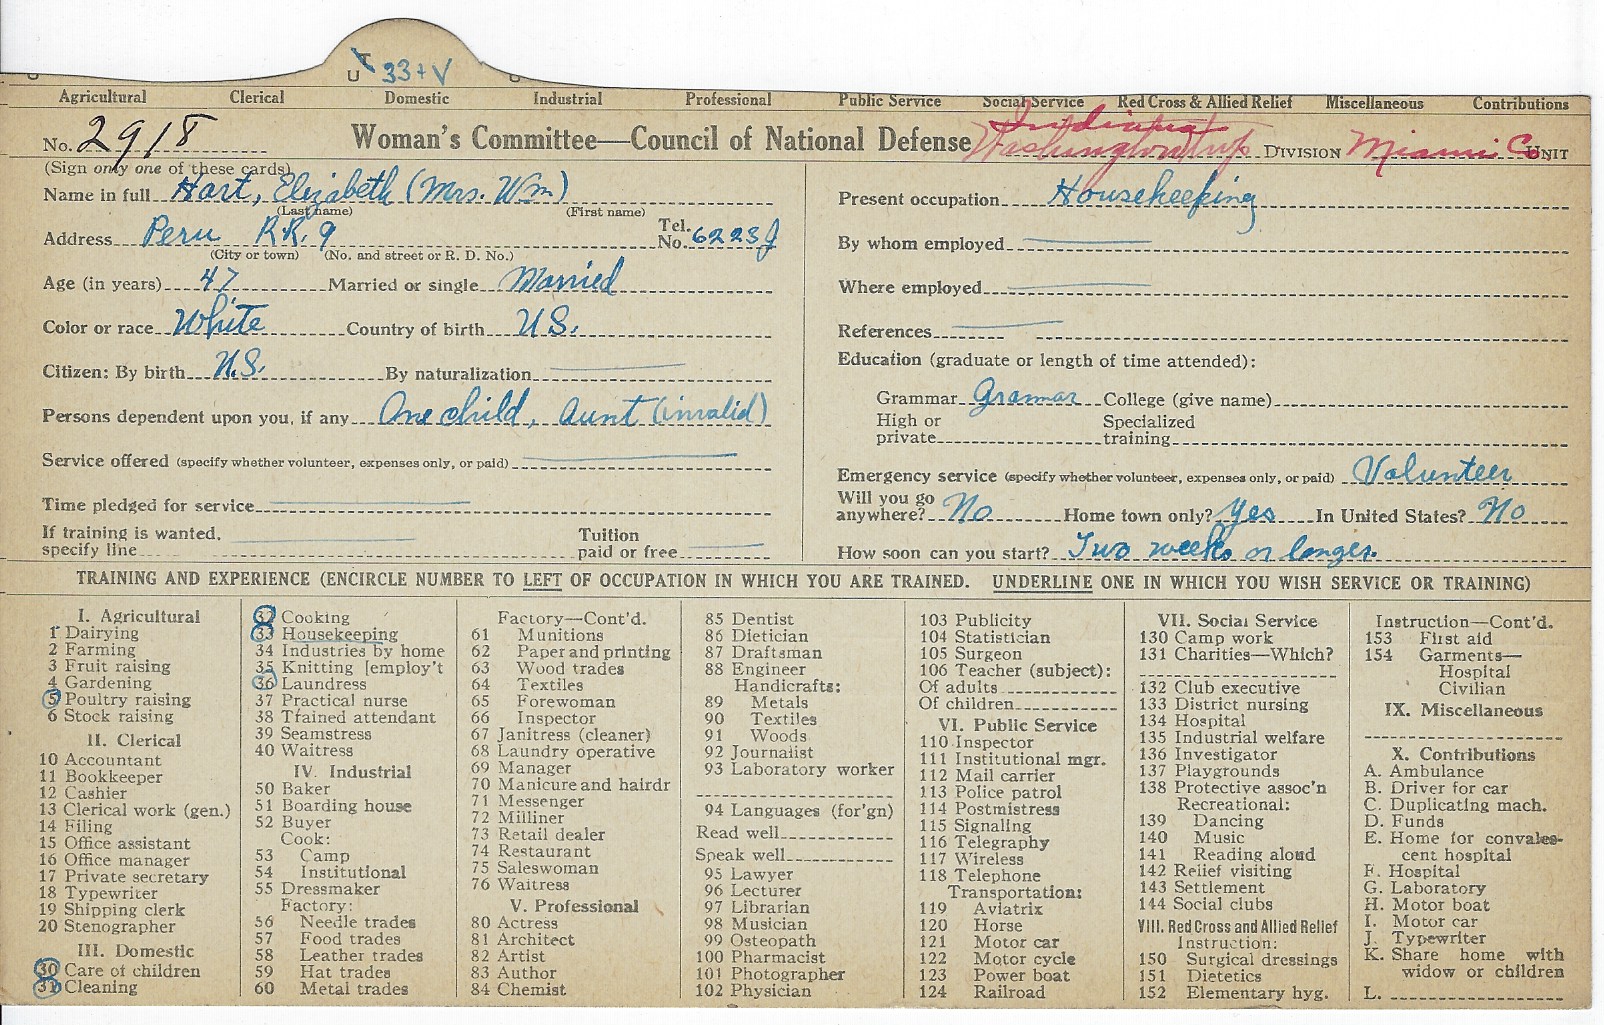 U T 33+V
Agricultural Clerical Domestic Industrial Professional Public Service Social Service Red Cross & Allied Relief Miscellaneous Contributions
Indiana
No. 2918 Woman's Committee—Council of National Defense Washington twp DIVISION Miami Co UNIT
(Sign only one of these cards)
Name in full Hart, Elizabeth (Mrs. Wm)
(Last name) (First name)
Address Peru R.R. 9 Tel. No. 6223J
(City or town) (No. and street or R. D. No.)
Age (in years) 47 Married or single Married
Color or race White Country of birth U.S.
Citizen: By birth U.S. By naturalization
Persons dependent upon you, if any One child, Aunt (invalid)
Service offered (specify whether volunteer, expenses only, or paid)
Time pledged for service
If training is wanted, specify line Tuition paid or free
Present occupation Housekeeping
By whom employed
Where employed
References
Education (graduate or length of time attended):
Grammar Grammar College (give name)
High or private Specialized training
Emergency service (specify whether volunteer, expenses only, or paid) Volunteer
Will you go anywhere? No Home town only? Yes In United States? No
How soon can you start? Two weeks or longer.
TRAINING AND EXPERIENCE (ENCIRCLE NUMBER TO LEFT OF OCCUPATION IN WHICH YOU ARE TRAINED. UNDERLINE ONE IN WHICH YOU WISH SERVICE OR TRAINING)
I. Agricultural
1 Dairying
2 Farming
3 Fruit raising
4 Gardening
5 Poultry raising
6 Stock raising
II. Clerical
10 Accountant
11 Bookkeeper
12 Cashier
13 Clerical work (gen.)
14 Filing
15 Office assistant
16 Office manager
17 Private secretary
18 Typewriter
19 Shipping clerk
20 Stenographer
III. Domestic
30 Care of children
31 Cleaning
32 Cooking
33 Housekeeping
34 Industries by home
35 Knitting [employ't
36 Laundress
37 Practical nurse
38 Trained attendant
39 Seamstress
40 Waitress
IV. Industrial
50 Baker
51 Boarding house
52 Buyer
Cook:
53 Camp
54 Institutional
55 Dressmaker
Factory:
56 Needle trades
57 Food trades
58 Leather trades
59 Hat trades
60 Metal trades
Factory—Cont'd.
61 Munitions
62 Paper and printing
63 Wood trades
64 Textiles
65 Forewoman
66 Inspector
67 Janitress (cleaner)
68 Laundry operative
69 Manager
70 Manicure and hairdr
71 Messenger
72 Milliner
73 Retail dealer
74 Restaurant
75 Saleswoman
76 Waitress
V. Professional
80 Actress
81 Architect
82 Artist
83 Author
84 Chemist
85 Dentist
86 Dietician
87 Draftsman
88 Engineer
Handicrafts:
89 Metals
90 Textiles
91 Woods
92 Journalist
93 Laboratory worker
94 Languages (for'gn)
Read well
Speak well
95 Lawyer
96 Lecturer
97 Librarian
98 Musician
99 Osteopath
100 Pharmacist
101 Photographer
102 Physician
103 Publicity
104 Statistician
105 Surgeon
106 Teacher (subject):
Of adults
Of children
VI. Public Service
110 Inspector
111 Institutional mgr.
112 Mail carrier
113 Police patrol
114 Postmistress
115 Signaling
116 Telegraphy
117 Wireless
118 Telephone
Transportation:
119 Aviatrix
120 Horse
121 Motor car
122 Motor cycle
123 Power boat
124 Railroad
VII. Social Service
130 Camp work
131 Charities—Which?
132 Club executive
133 District nursing
134 Hospital
135 Industrial welfare
136 Investigator
137 Playgrounds
138 Protective assoc'n
Recreational:
139 Dancing
140 Music
141 Reading aloud
142 Relief visiting
143 Settlement
144 Social clubs
VIII. Red Cross and Allied Relief
Instruction:
150 Surgical dressings
151 Dietetics
152 Elementary hyg.
Instruction—Cont'd.
153 First aid
154 Garments—
Hospital
Civilian
IX. Miscellaneous
X. Contributions
A. Ambulance
B. Driver for car
C. Duplicating mach.
D. Funds
E. Home for convales-
cent hospital
F. Hospital
G. Laboratory
H. Motor boat
I. Motor car
J. Typewriter
K. Share home with
widow or children
L.